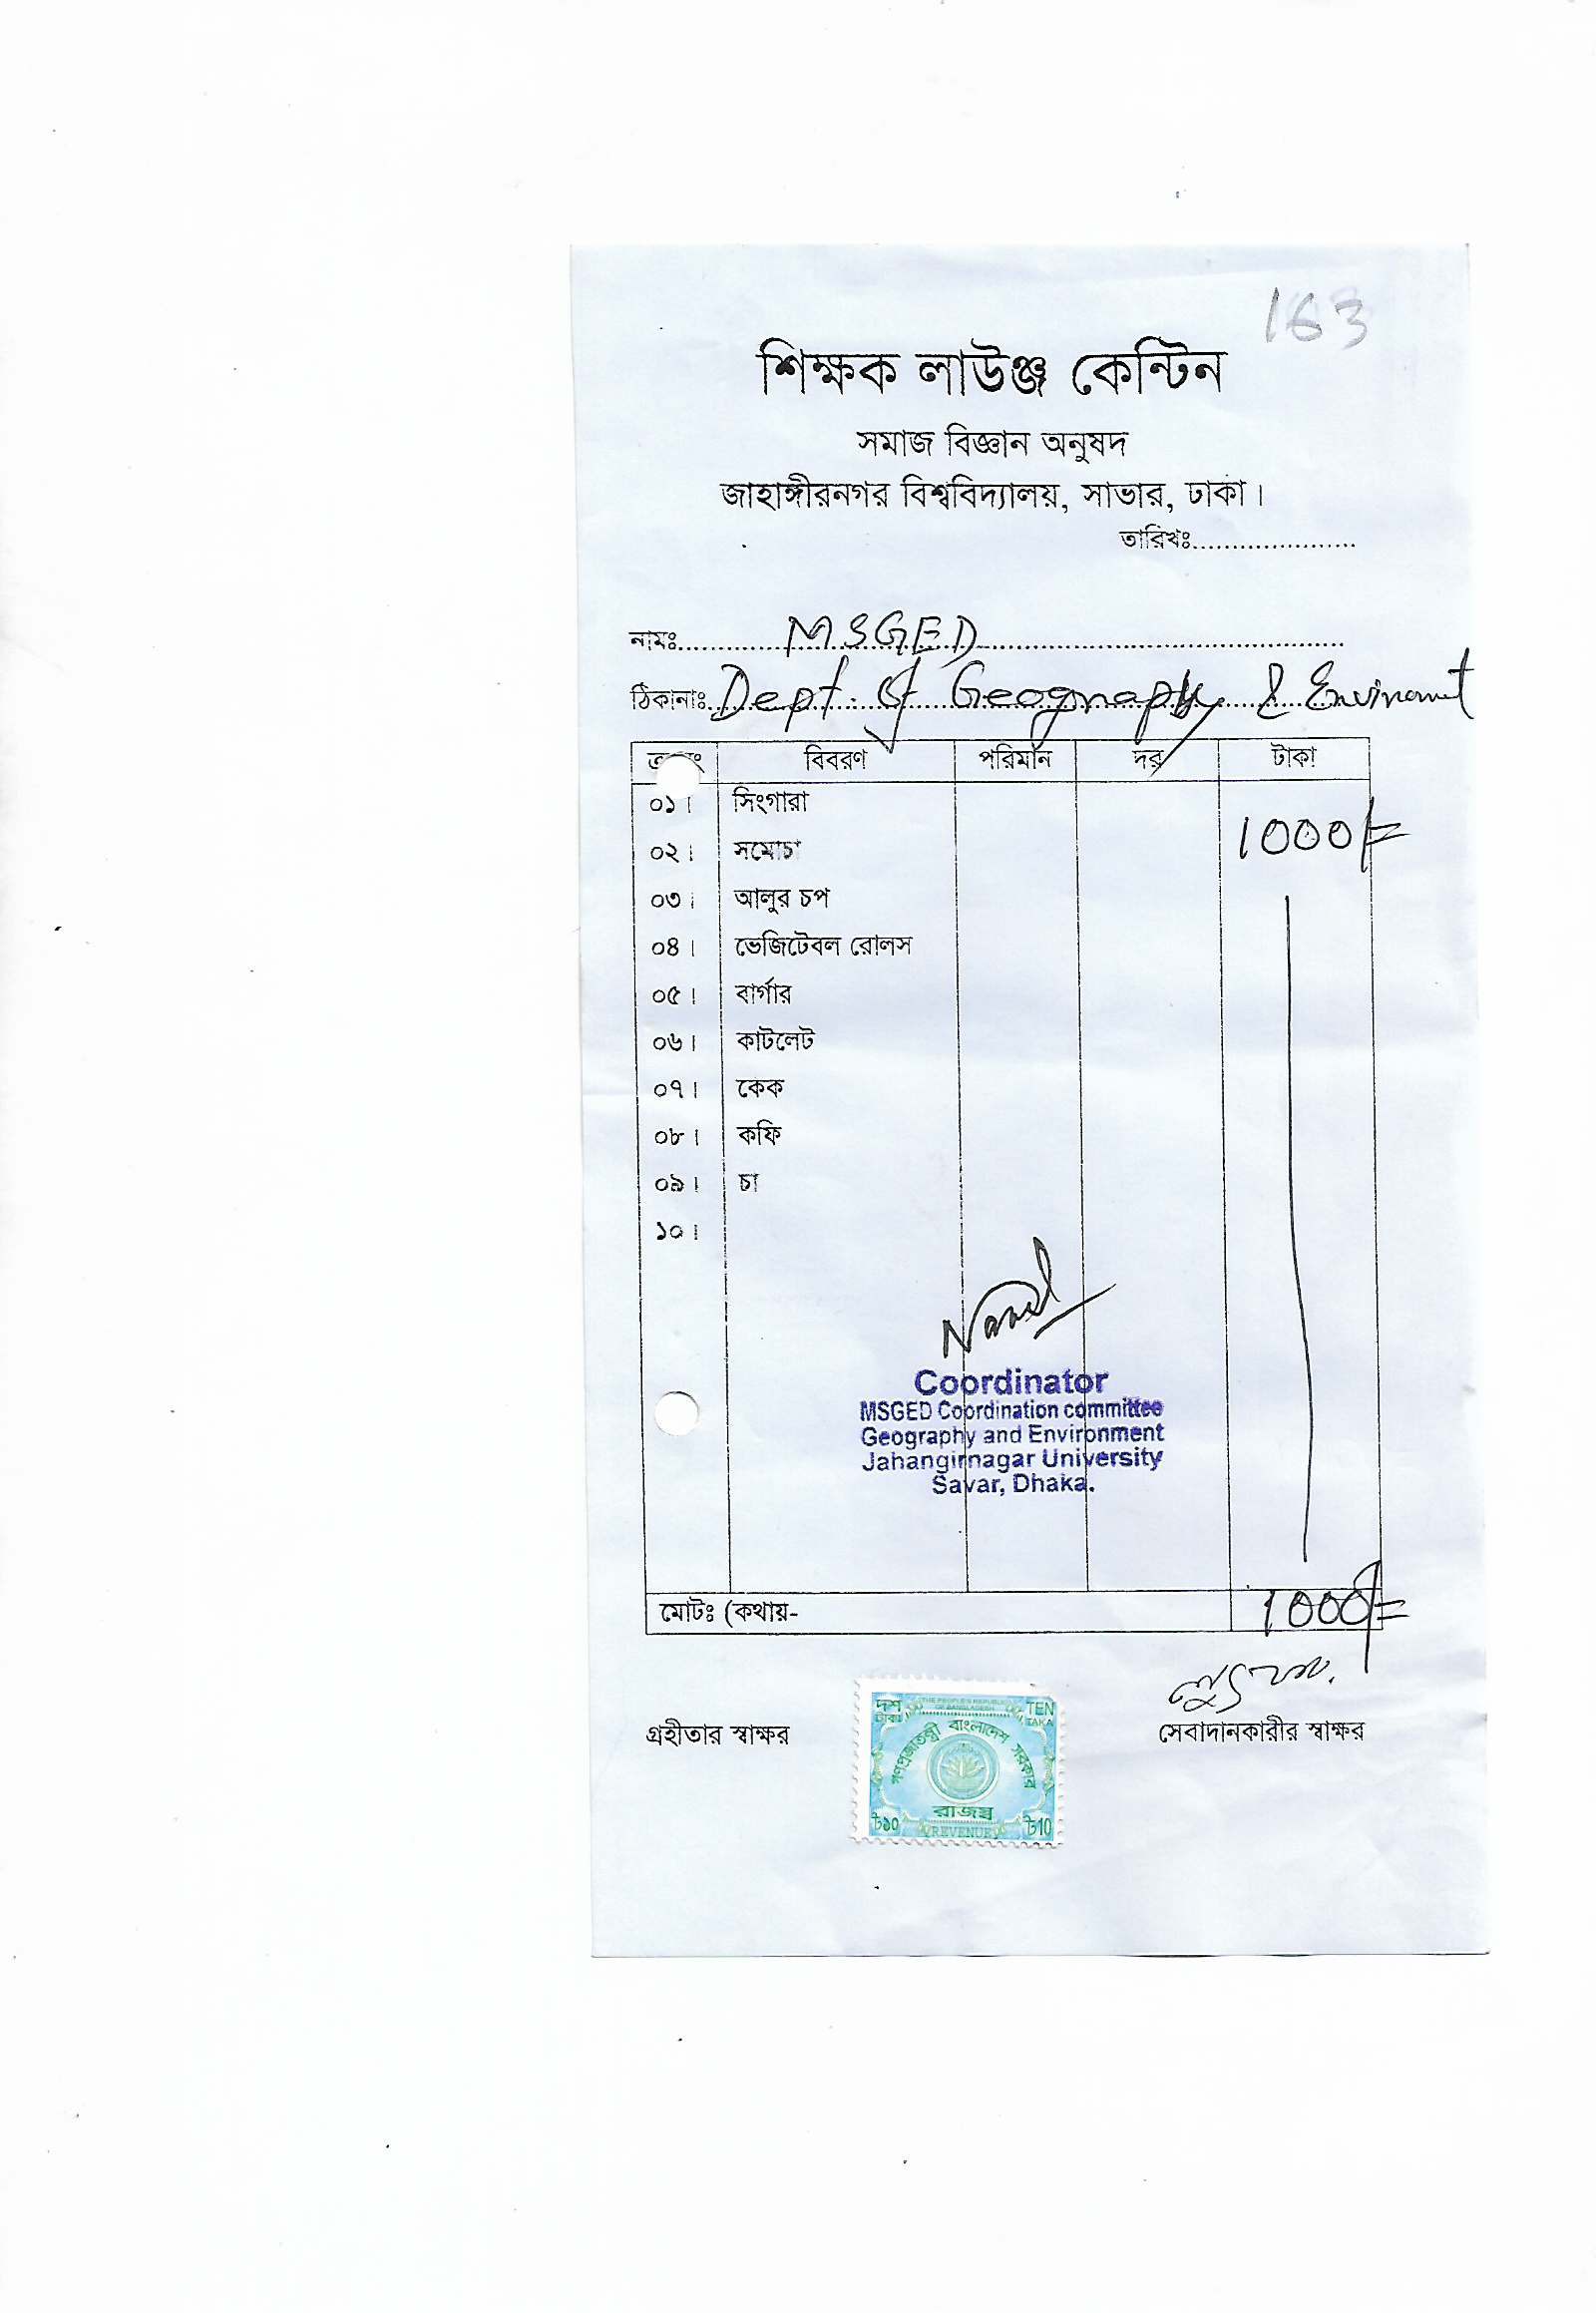 163
শিক্ষক লাউঞ্জ কেন্টিন
সমাজ বিজ্ঞান অনুষদ
জাহাঙ্গীরনগর বিশ্ববিদ্যালয়, সাভার, ঢাকা।
তারিখঃ......................
নামঃ.......MSGED.......
ঠিকানাঃ Dept. of Geography & Envinomnt
বিবরণ পরিমান দর টাকা
০১। সিংগারা
1000/=
০২। সমোচা
০৩। আলুর চপ
০৪। ভেজিটেবল রোলস
০৫। বার্গার
০৬। কাটলেট
০৭। কেক
০৮। কফি
০৯। চা
১০।
Coordinator
MSGED Coordination committee
Geography and Environment
Jahangirnagar University
Savar, Dhaka.
মোটঃ (কথায়- 1000/=
গ্রহীতার স্বাক্ষর
সেবাদানকারীর স্বাক্ষর
দশ টাকা THE PEOPLE'S REPUBLIC OF BANGLADESH TEN TAKA
গণপ্রজাতন্ত্রী বাংলাদেশ সরকার
রাজস্ব
৳১০ REVENUE ৳10